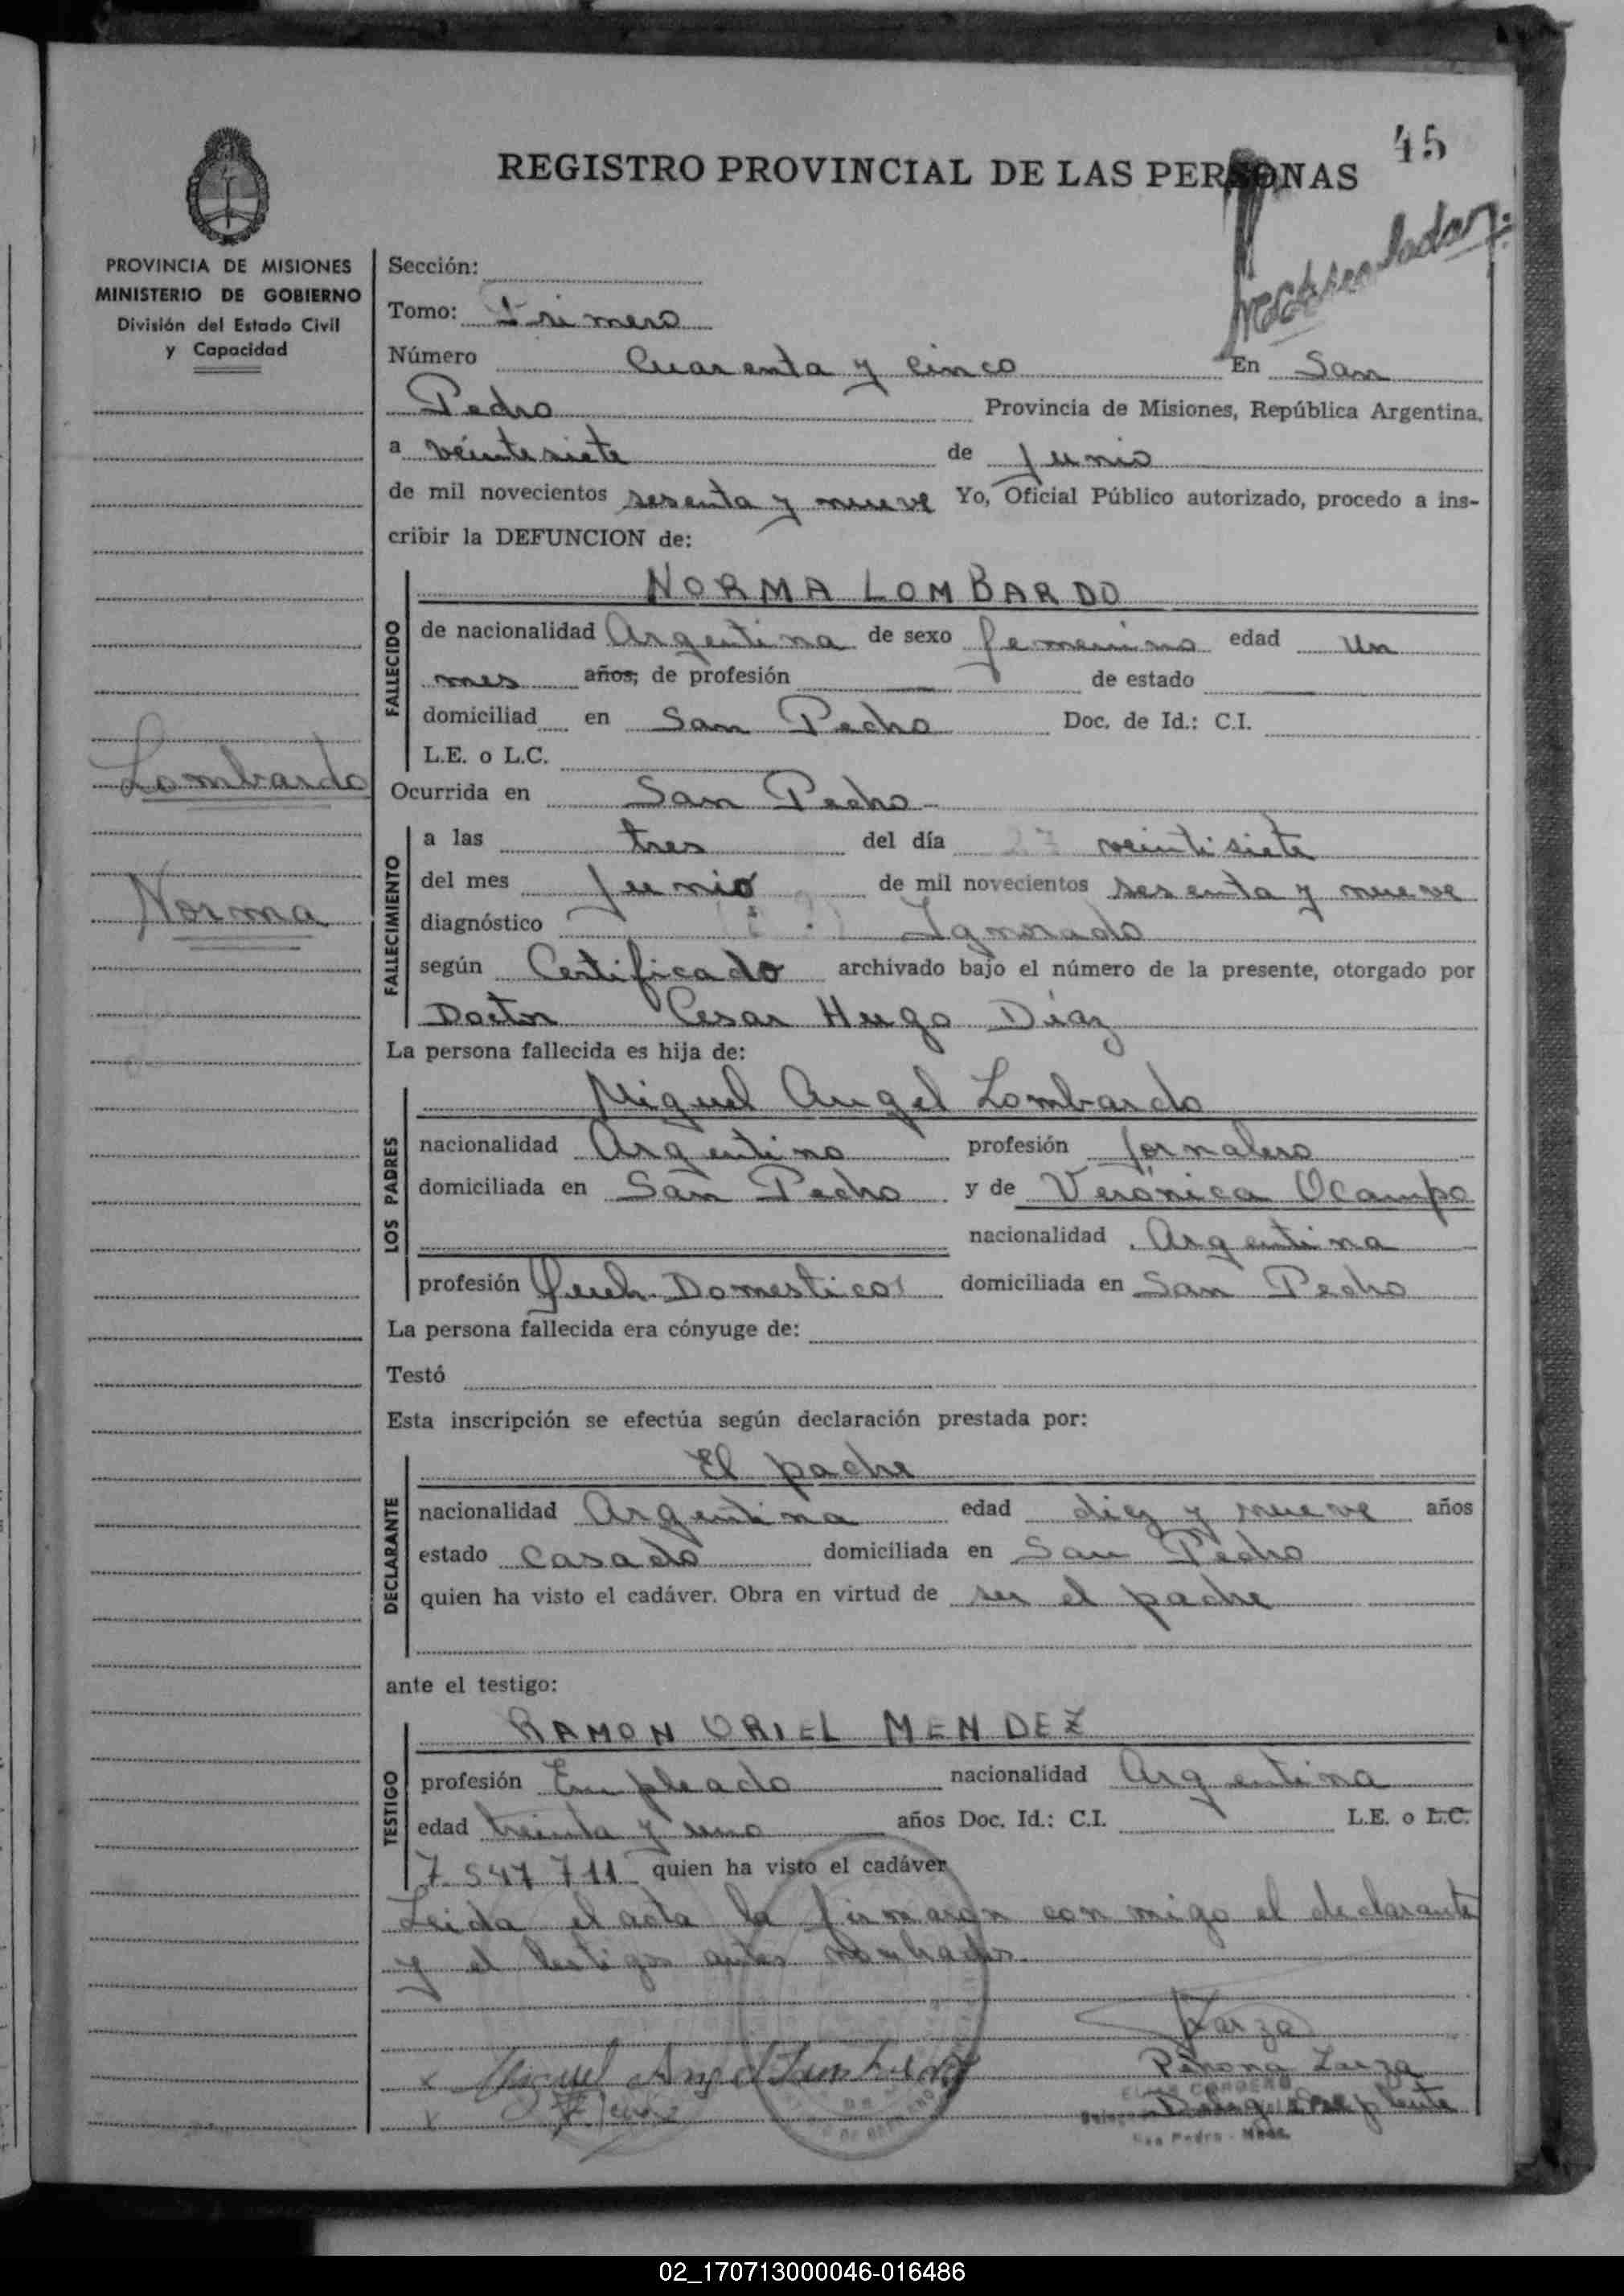 45
REGISTRO PROVINCIAL DE LAS PERSONAS
PROVINCIA DE MISIONES
MINISTERIO DE GOBIERNO
División del Estado Civil
y Capacidad
Lombardo
Norma
Sección:
Tomo: Primero
Número Cuarenta y cinco En San
Pedro Provincia de Misiones, República Argentina.
a veintisiete de Junio
de mil novecientos sesenta y nueve Yo, Oficial Público autorizado, procedo a ins-
cribir la DEFUNCION de:
FALLECIDO
NORMA LOMBARDO
de nacionalidad Argentina de sexo femenino edad un
mes años; de profesión de estado
domiciliad en San Pedro Doc. de Id.: C.I.
L.E. o L.C.
Ocurrida en San Pedro
FALLECIMIENTO
a las tres del día 27 veintisiete
del mes Junio de mil novecientos sesenta y nueve
diagnóstico Ignorado
según Certificado archivado bajo el número de la presente, otorgado por
Doctor Cesar Hugo Diaz
La persona fallecida es hija de:
LOS PADRES
Miguel Angel Lombardo
nacionalidad Argentino profesión Jornalero
domiciliada en San Pedro y de Verónica Ocampo
nacionalidad Argentina
profesión Domesticos domiciliada en San Pedro
La persona fallecida era cónyuge de:
Testó
Esta inscripción se efectúa según declaración prestada por:
DECLARANTE
El padre
nacionalidad Argentina edad diez y nueve años
estado casado domiciliada en San Pedro
quien ha visto el cadáver. Obra en virtud de ser el padre
ante el testigo:
TESTIGO
RAMON ORIEL MENDEZ
profesión Empleado nacionalidad Argentina
edad treinta y uno años Doc. Id.: C.I. L.E. o L.C.
7 547 711 quien ha visto el cadáver
Leida el acta la firmaron con migo el declarante
y el testigo antes nombrados
Miguel Angel Lombardo
San Pedro - Mnes.
02_170713000046-016486